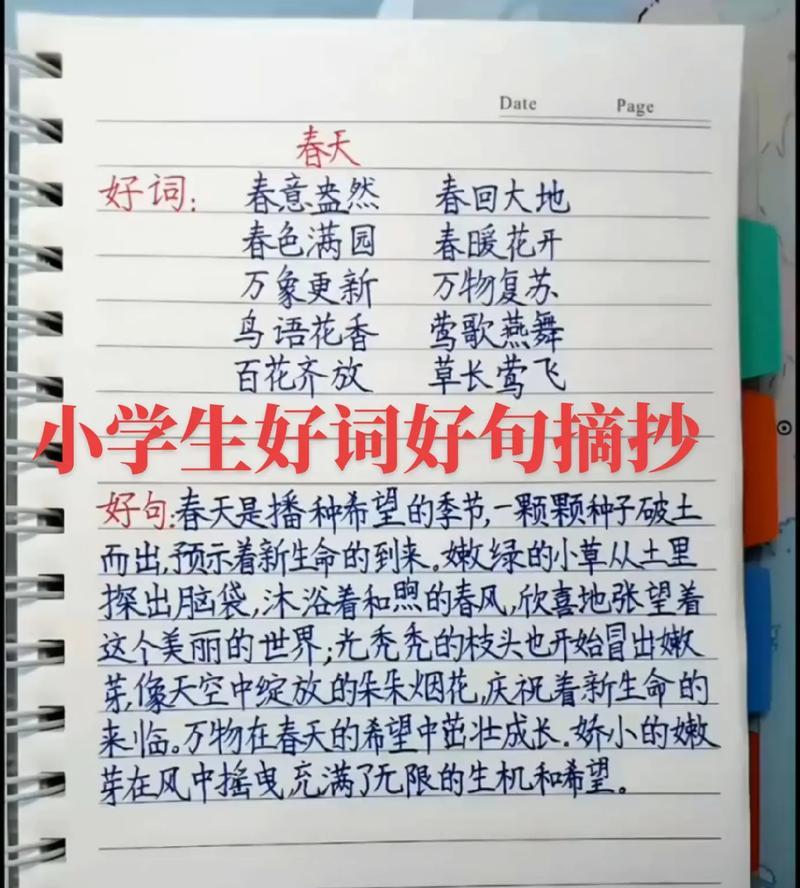 Date Page
春天
好词: 春意盎然 春回大地
春色满园 春暖花开
万象更新 万物复苏
鸟语花香 莺歌燕舞
百花齐放 草长莺飞
小学生好词好句摘抄
好句:春天是播种希望的季节,一颗颗种子破土
而出,预示着新生命的到来。嫩绿的小草从土里
探出脑袋,沐浴着和煦的春风,欣喜地张望着
这个美丽的世界;光秃秃的枝头也开始冒出嫩
芽,像天空中绽放的朵朵烟花,庆祝着新生命的
来临。万物在春天的希望中茁壮成长.娇小的嫩
芽在风中摇曳,充满了无限的生机和希望。